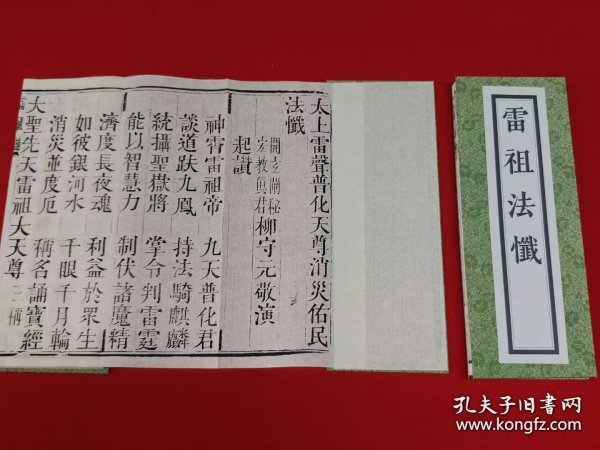 太上雷聲普化天尊消災佑民
法懺
開玄闡秘
宏教真君柳守元敬演
起讚
神霄雷祖帝 九天普化君
談道趺九鳳 持法騎麒麟
統攝聖嶽將 掌令判雷霆
能以智慧力 制伏諸魔精
濟度長夜魂 利益於眾生
如彼銀河水 千眼千月輪
消災並度厄 稱名誦寶經
大聖先天雷祖大天尊 三稱
雷祖法懺
孔夫子旧书网
www.kongfz.com